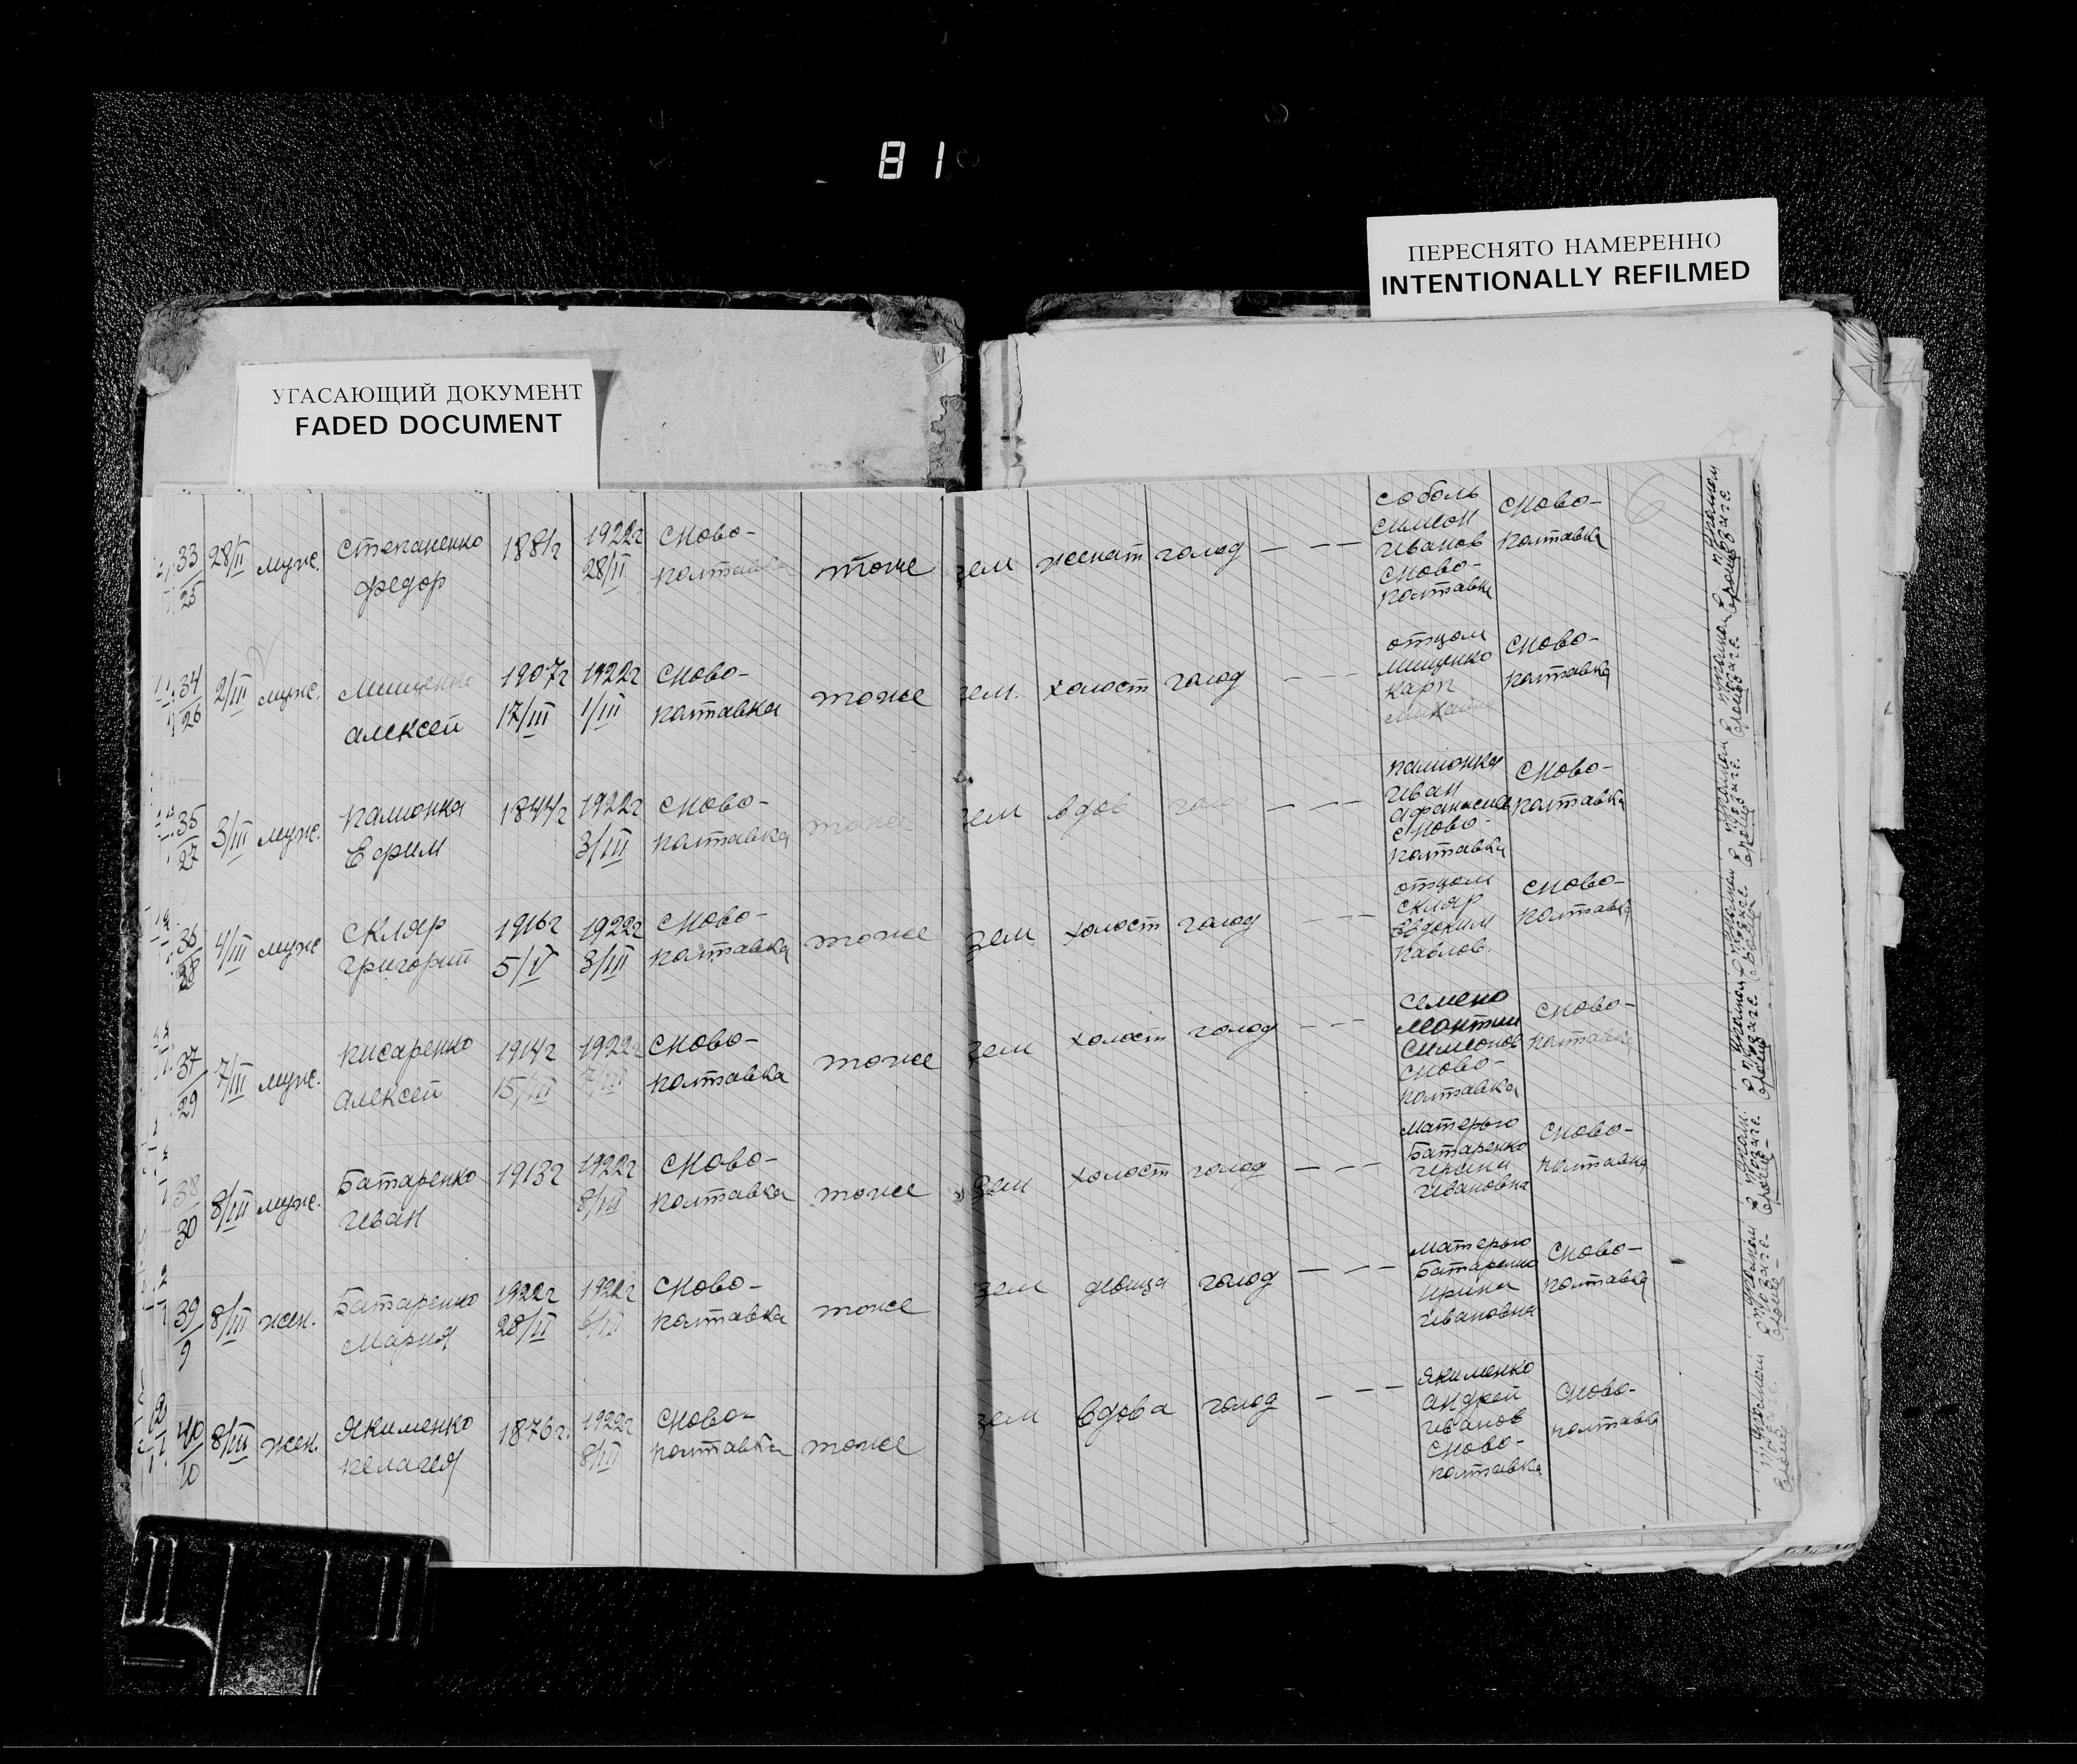 81
ПЕРЕСНЯТО НАМЕРЕННО
INTENTIONALLY REFILMED
УГАСАЮЩИЙ ДОКУМЕНТ
FADED DOCUMENT
6
33/25 28/II муж. Степаненко Федор 1881г 1922г 28/II с Ново-полтавка тоже зем женат голод — — — Соболь Симеон Иванов с Ново-полтавка с Ново-полтавка
34/26 2/III муж. Мищенко Алексей 1907г 17/III 1922г 1/III с Ново-полтавка тоже зем. холост голод — — — отцом Мищенко Карп с Ново-полтавка
35/27 3/III муж. Палионка Ефим 1844г 1922г 3/III с Ново-полтавка тоже зем вдов голод — — — Палионка Иван Афанасиев с Ново-полтавка с Ново-полтавка
36/28 4/III муж Скляр Григорий 1916г 5/V 1922г 3/III с Ново-полтавка тоже зем холост голод — — — отцом Скляр Евдоким Павлов. с Ново-полтавка
37/29 7/III муж. Писаренко Алексей 1914г 15/III 1922г 7/III с Ново-полтавка тоже зем холост голод — — — Симеонов с Ново-полтавка с Ново-полтавка
38/30 8/III муж. Батаренко Иван 1913г 1922г 8/III с Ново-полтавка тоже зем холост голод — — — матерью Батаренко Ирина Ивановна с Ново-полтавка
39/9 8/III жен. Батаренко Мария 1922г 28/II 1922г с Ново-полтавка тоже зем девица голод — — — матерью Батаренко Ирина Ивановна с Ново-полтавка
40/10 8/III жен. Якименко Пелагея 1876г. 1922г 8/III с Ново-полтавка тоже зем вдова голод — — — Якименко Андрей Иванов с Ново-полтавка с Ново-полтавка